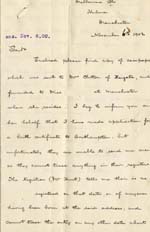 Hulme
Manchester
November 6th 1902
Enclosed please find copy of
which was sent to Mr Clifton of
forwarded to Miss at Manchester
where she resides. I beg to inform you on
her behalf that I have made application for
a birth certificate to Southampton but
unfortunately they are unable to send me one
as they cannot trace anything in their register.
The Registrar (Mr Hunt) tells me there is no
registered on that date or of anyone
having been born at the said address, and
cannot trace the entry on any other date about